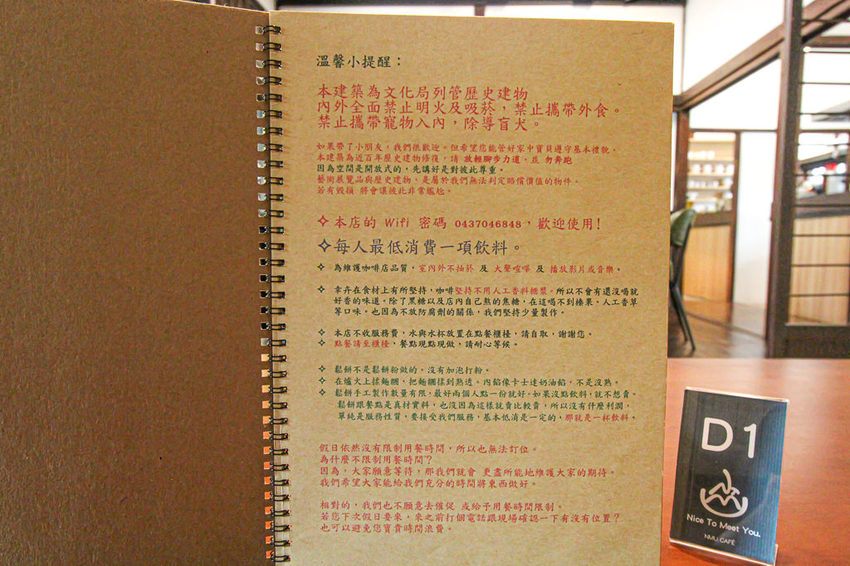 溫馨小提醒：
本建築為文化局列管歷史建物
內外全面禁止明火及吸菸，禁止攜帶外食。
禁止攜帶寵物入內，除導盲犬。
如果帶了小朋友，我們很歡迎。但希望您能管好家中寶貝遵守基本禮貌。
本建築為近百年歷史建物修復，請 放輕腳步力道、並 勿奔跑
因為空間是開放式的，先講好是對彼此尊重。
藝術展覽品與歷史建物、是屬於我們無法判定賠償價值的物件。
若有毀損 將會讓彼此非常尷尬。
✧本店的 Wifi 密碼 0437046848，歡迎使用!
✧每人最低消費一項飲料。
✧ 為維護咖啡店品質，室內外不抽菸 及 大聲喧嘩 及 播放影片或音樂。
✧ 拿卉在食材上有所堅持，咖啡堅持不用人工香料糖漿。所以不會有還沒喝就
好香的味道。除了黑糖以及店內自己熬的焦糖，在這喝不到榛果、人工香草
等口味。也因為不放防腐劑的關係，我們堅持少量製作。
✧ 本店不收服務費，水與水杯放置在點餐櫃檯，請自取，謝謝您。
✧ 點餐請至櫃檯，餐點現點現做，請耐心等候。
✧ 鬆餅不是鬆餅粉做的。沒有加泡打粉。
✧ 在爐火上揉麵糰，把麵糰揉到熟透。內餡像卡士達奶油餡，不是沒熟。
✧ 鬆餅手工製作數量有限，最好兩個人點一份就好。如果沒點飲料，就不想賣。
鬆餅跟餐點是真材實料，也沒因為這樣就賣比較貴，所以沒有什麼利潤，
單純是服務性質，要接受我們服務，基本低消是一定的，那就是一杯飲料。
假日依然沒有限制用餐時間，所以也無法訂位。
為什麼不限制用餐時間?
因為，大家願意等待，那我們就會 更盡所能地維護大家的期待。
我們希望大家能給我們充分的時間將東西做好。
相對的，我們也不願意去催促 或給予用餐時間限制。
若您下次假日要來，來之前打個電話跟現場確認一下有沒有位置?
也可以避免您寶貴時間浪費。
D1
Nice To Meet You.
NMU CAFÉ